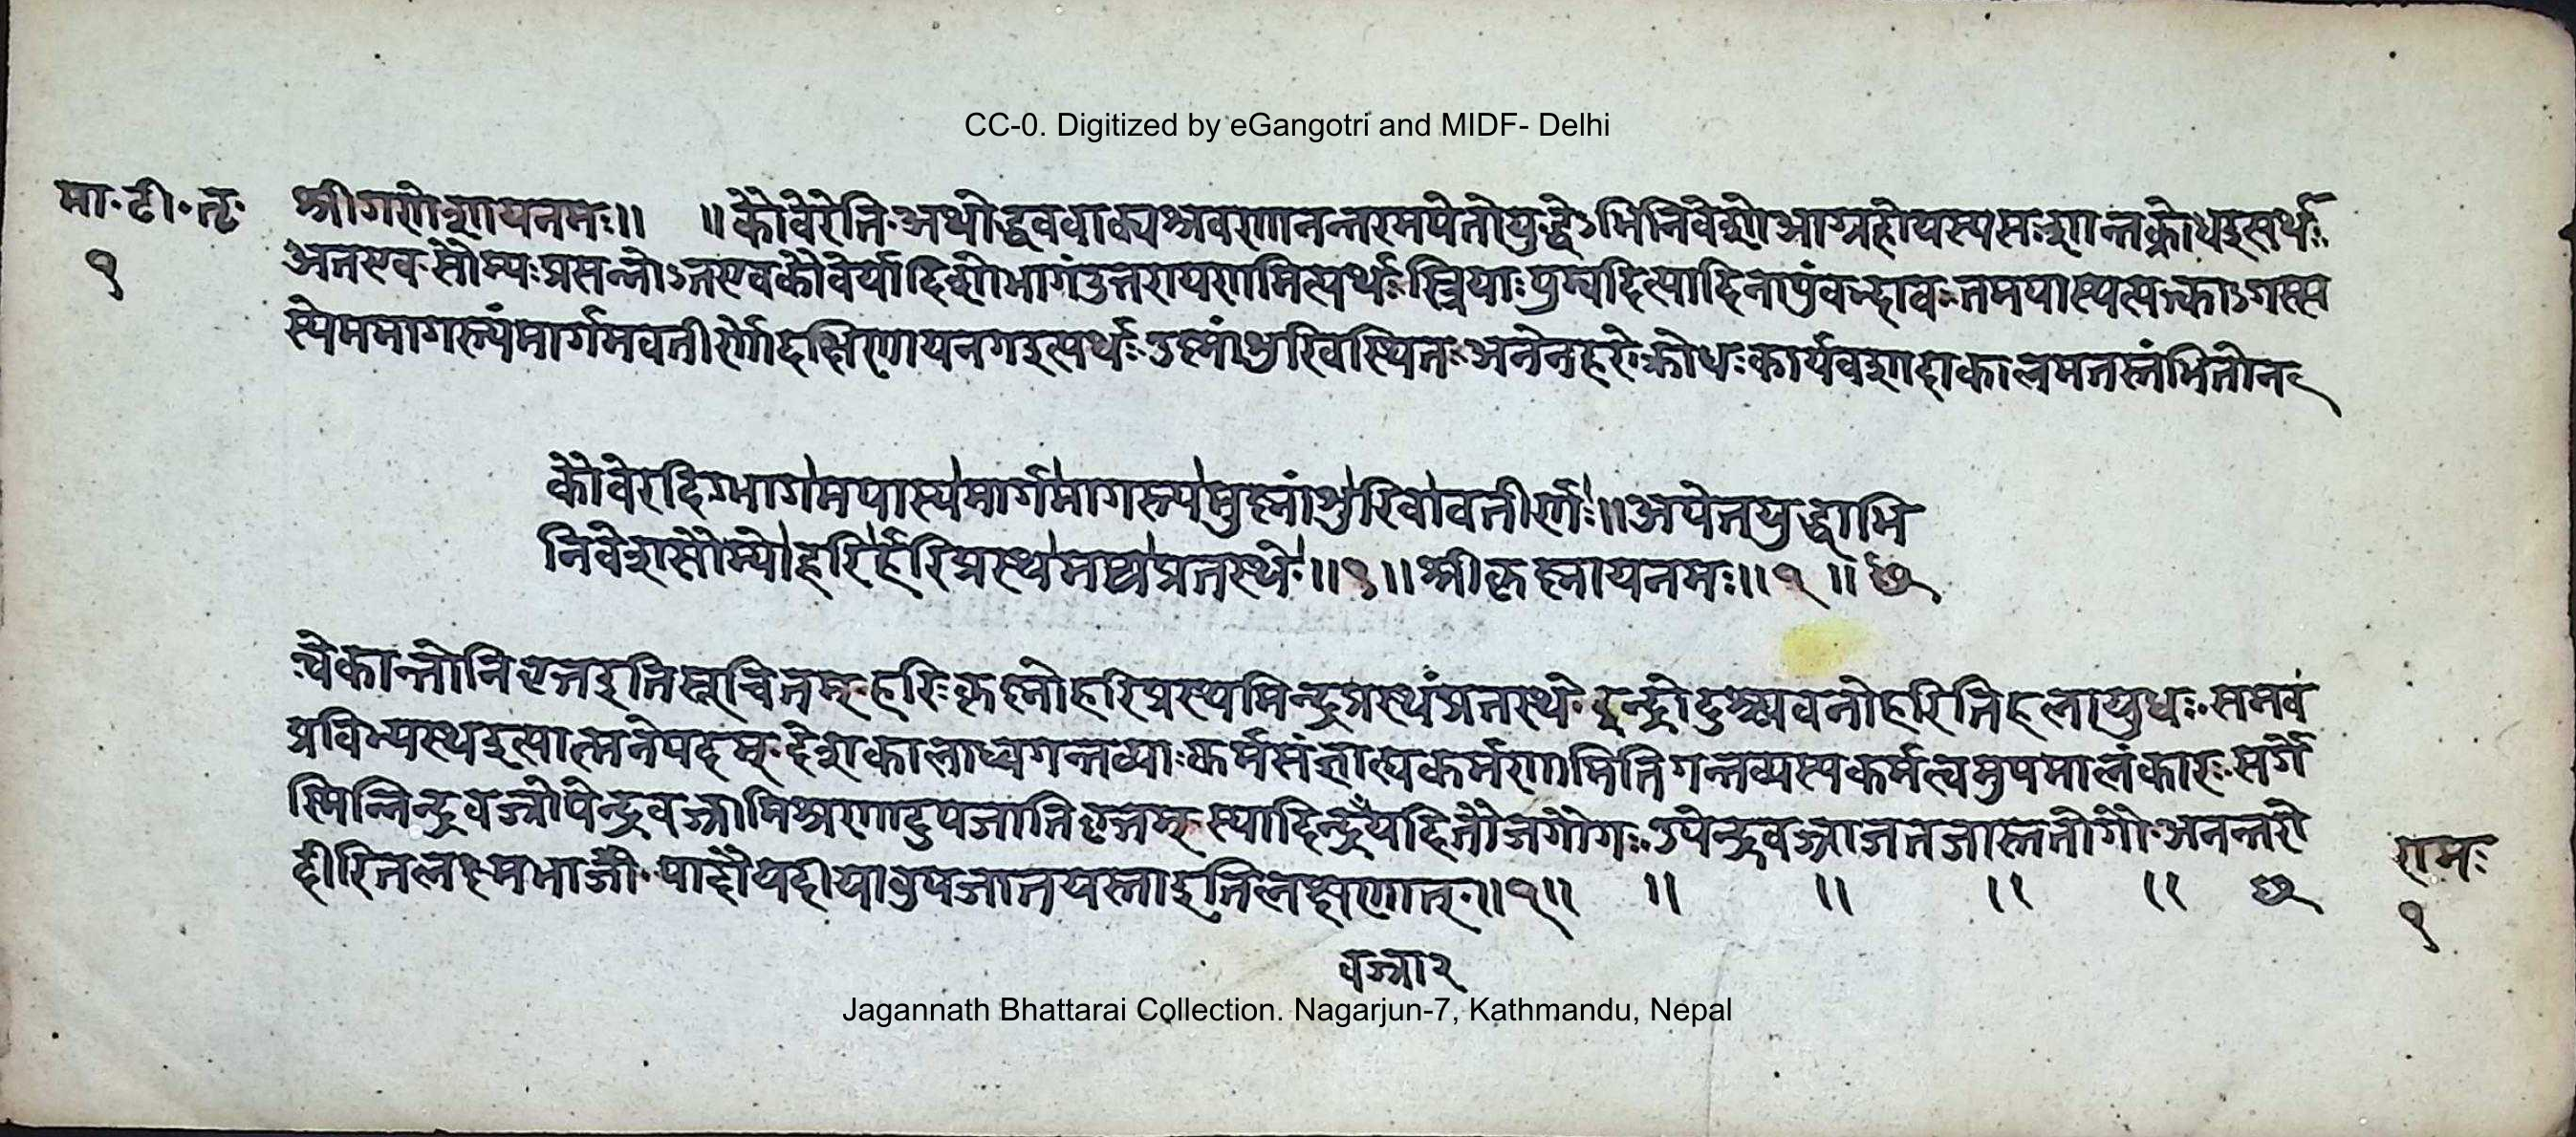 CC-0. Digitized by eGangotri and MIDF- Delhi
मा॰टी॰तृ॰ श्रीगणेशायनमः॥ ॥कौवेरेति॰अथोद्धववाक्यश्रवणानन्तरमपेतोयुद्धेऽभिनिवेशोआग्रहोयस्यसःशान्तक्रोधइत्यर्थः
१ अतएवसौम्यःप्रसन्नोऽतएवकौवेर्यादिशोभागंउत्तरायणमित्यर्थःस्त्रियाःपुम्वदित्यादिनापुंवद्भावःतमपास्यत्यक्त्वाऽगस्त्य
स्येममागस्त्यंमार्गमवतीर्णोदक्षिणायनगइत्यर्थःउष्णांशुरिवस्थितःअनेनहरेःक्रोधःकार्यवशादाकालमतस्तंभितोन
कौवेरदिग्भागमपास्यमार्गमागस्त्यमुष्णांशुरिवावतीर्णः॥अपेतयुद्धाभि
निवेशसौम्योहरिर्हरिप्रस्थमथप्रतस्थे॰॥१॥श्रीकृष्णायनमः॥१॥
त्वेकान्तोनिवृत्तइतिसूचितम्॰हरिःकृष्णोहरिप्रस्थमिन्द्रप्रस्थंप्रतस्थे॰इन्द्रोदुश्च्यवनोहरिरितिहलायुधः॰समव
प्रविभ्यस्थइत्यात्मनेपदम्॰देशकालाध्वगन्तव्याःकर्मसंज्ञाह्यकर्मणामितिगन्तव्यस्यकर्मत्वमुपमालंकारः॰सर्गे
स्मिन्निन्द्रवज्रोपेन्द्रवज्रामिश्रणादुपजातिवृत्तम्॰स्यादिन्द्रँयदितौजगौगः॰उपेन्द्रवज्राजतजास्ततोगौ॰अनन्तरो
दीरितलक्ष्मभाजौ॰पादौयदीयावुपजातयस्ताइतिलक्षणात्॰॥१॥ ॥ ॥ ॥ ॥
रामः
१
वज्रा२
Jagannath Bhattarai Collection. Nagarjun-7, Kathmandu, Nepal